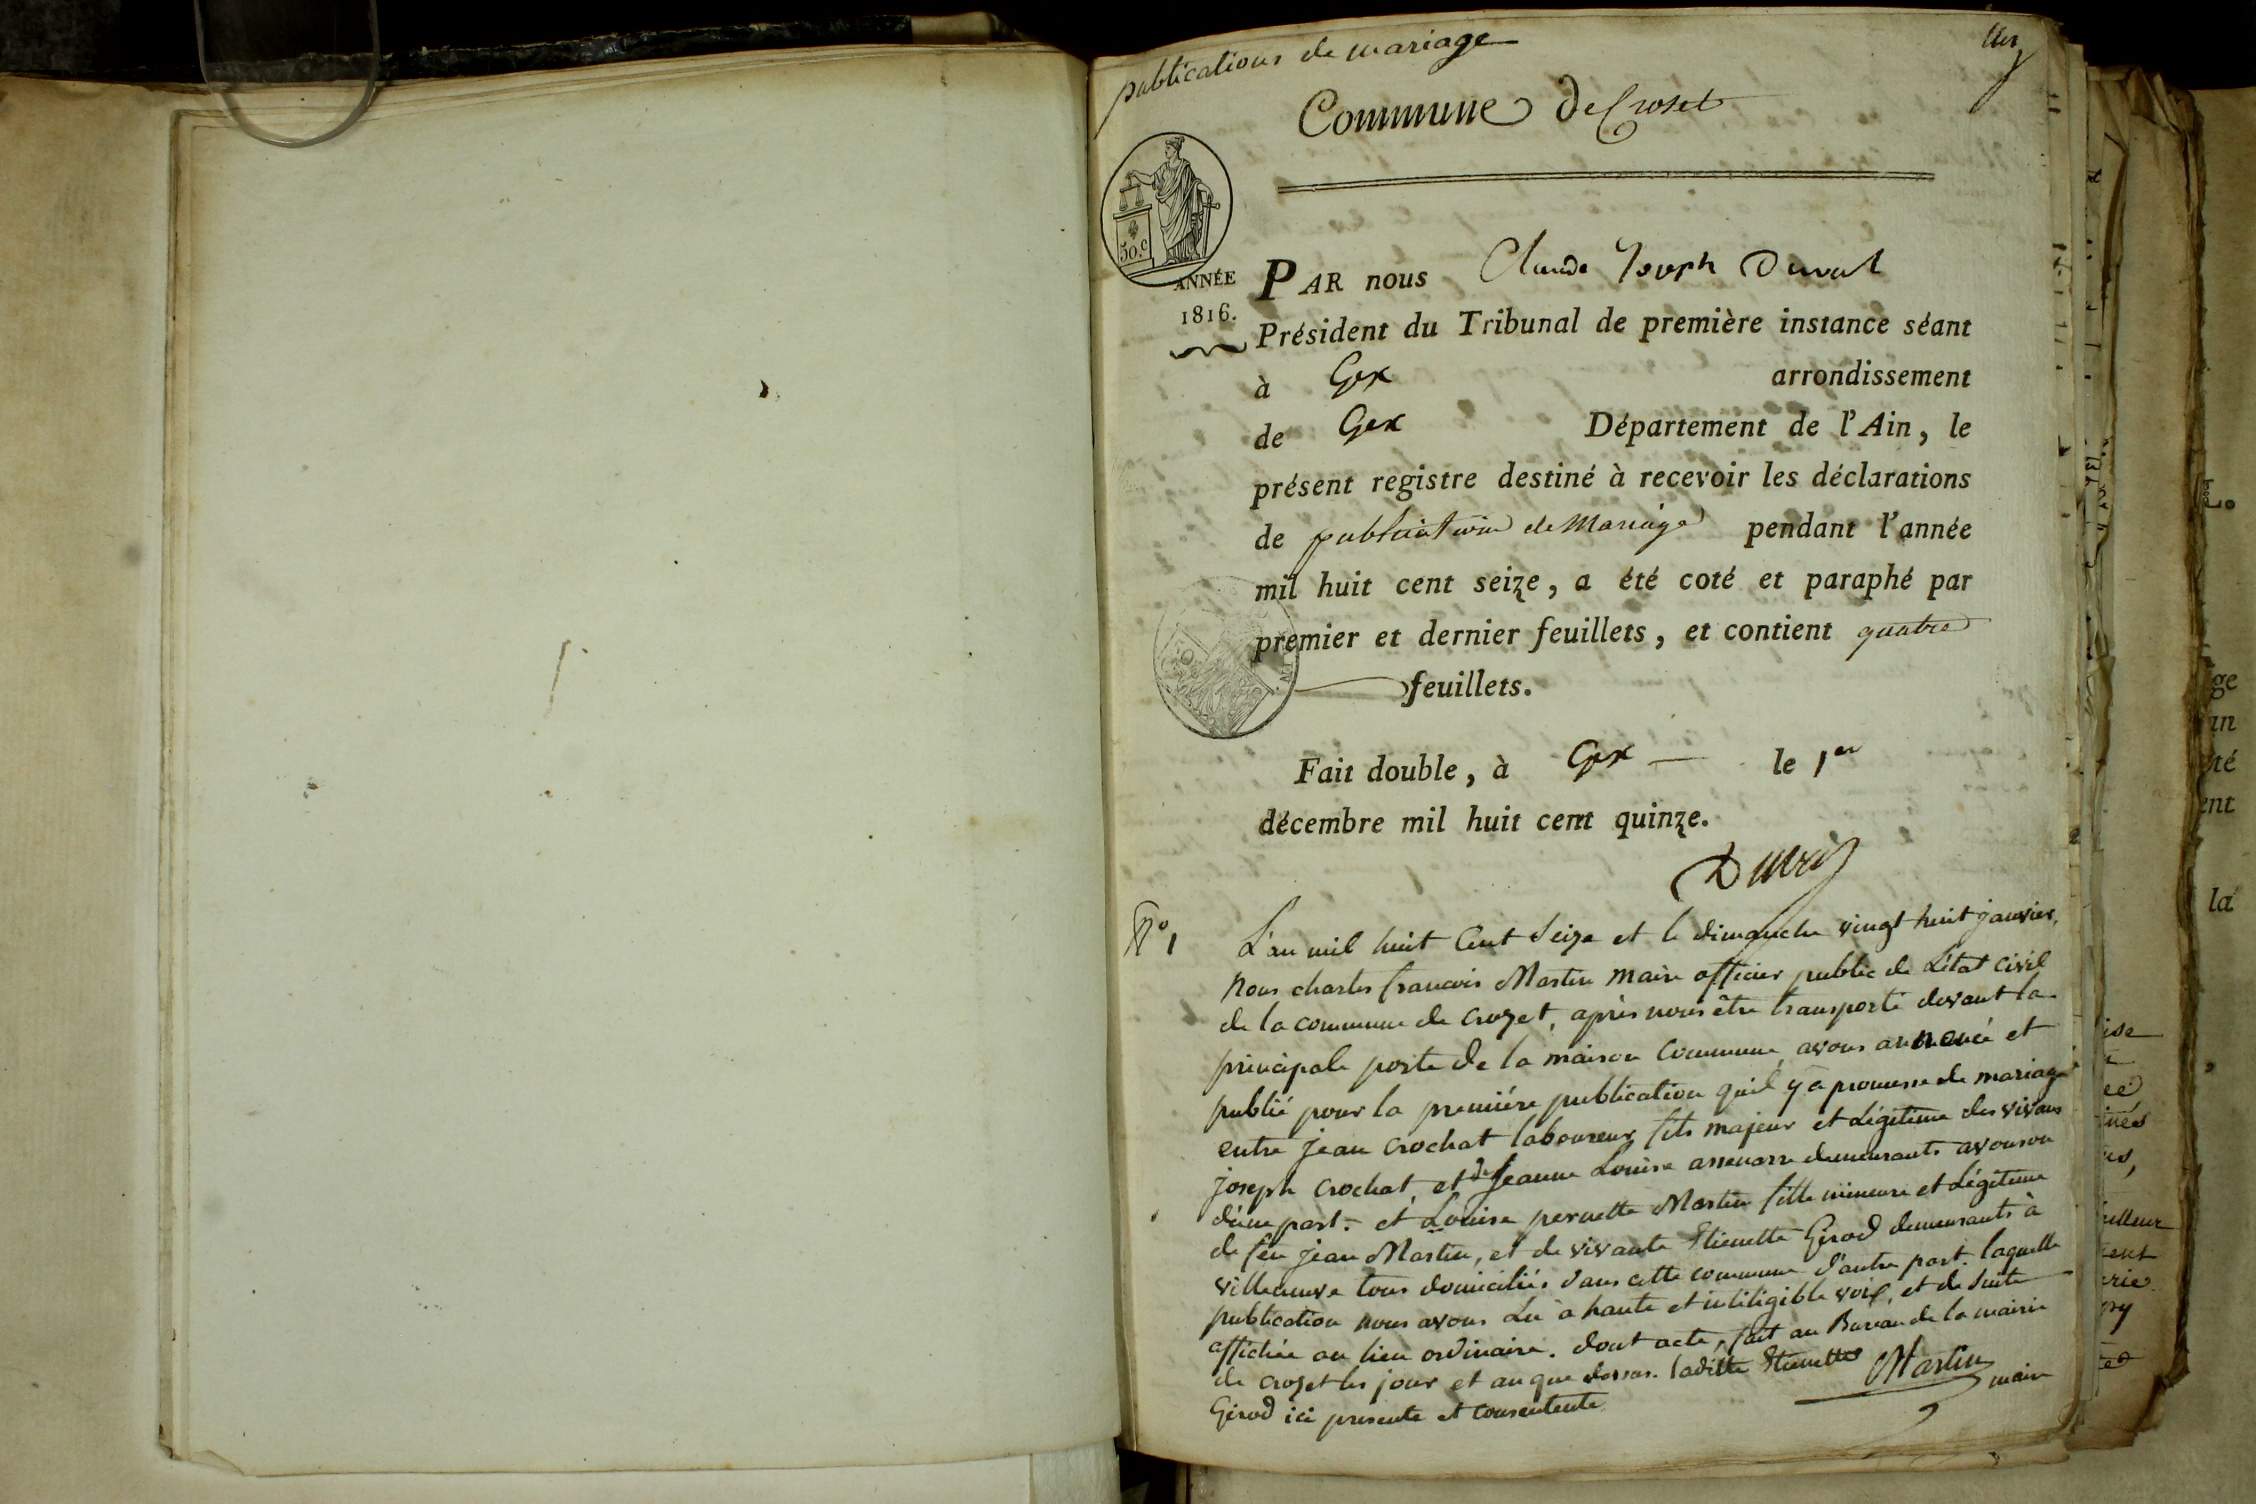 publications de mariage
un
Commune de Croset
50.c
ANNÉE
1816.
PAR nous Claude Joseph Duval
Président du Tribunal de première instance séant
à Gex arrondissement
de Gex Département de l'Ain, le
présent registre destiné à recevoir les déclarations
de publication de Mariage pendant l'année
mil huit cent seize, a été coté et paraphé par
premier et dernier feuillets, et contient quatre
feuillets.
Fait double, à Gex le 1er
décembre mil huit cent quinze.
Duval
N° 1
L'an mil huit Cent Seize et le dimanche vingt huit janvier,
Nous charles francois Martin Maire officier public de L'état civil
de la commune de crozet, après nous être transporté devant la
principale porte de la maison Commune, avons annoncé et
publié pour la première publication quil y a promesse de mariage
entre jean crochat laboureur fils majeur et Légitime des vivans
joseph crochat, et de jeanne Louise demeurants
d'une part. et Louise pernette Martin fille mineure et Légitime
de feu jean Martin, et de vivante Etienette Girod demeurants à
villeneuve tous domiciliés dans cette commune d'autre part. laquelle
publication nous avons Lu à haute et inteligible voix, et de suite
affichée au lieu ordinaire. dont acte, fait au Bureau de la mairie
de crozet les jour et an que dessus. laditte Etienette
Girod ici presente et consentente
Martin
maire